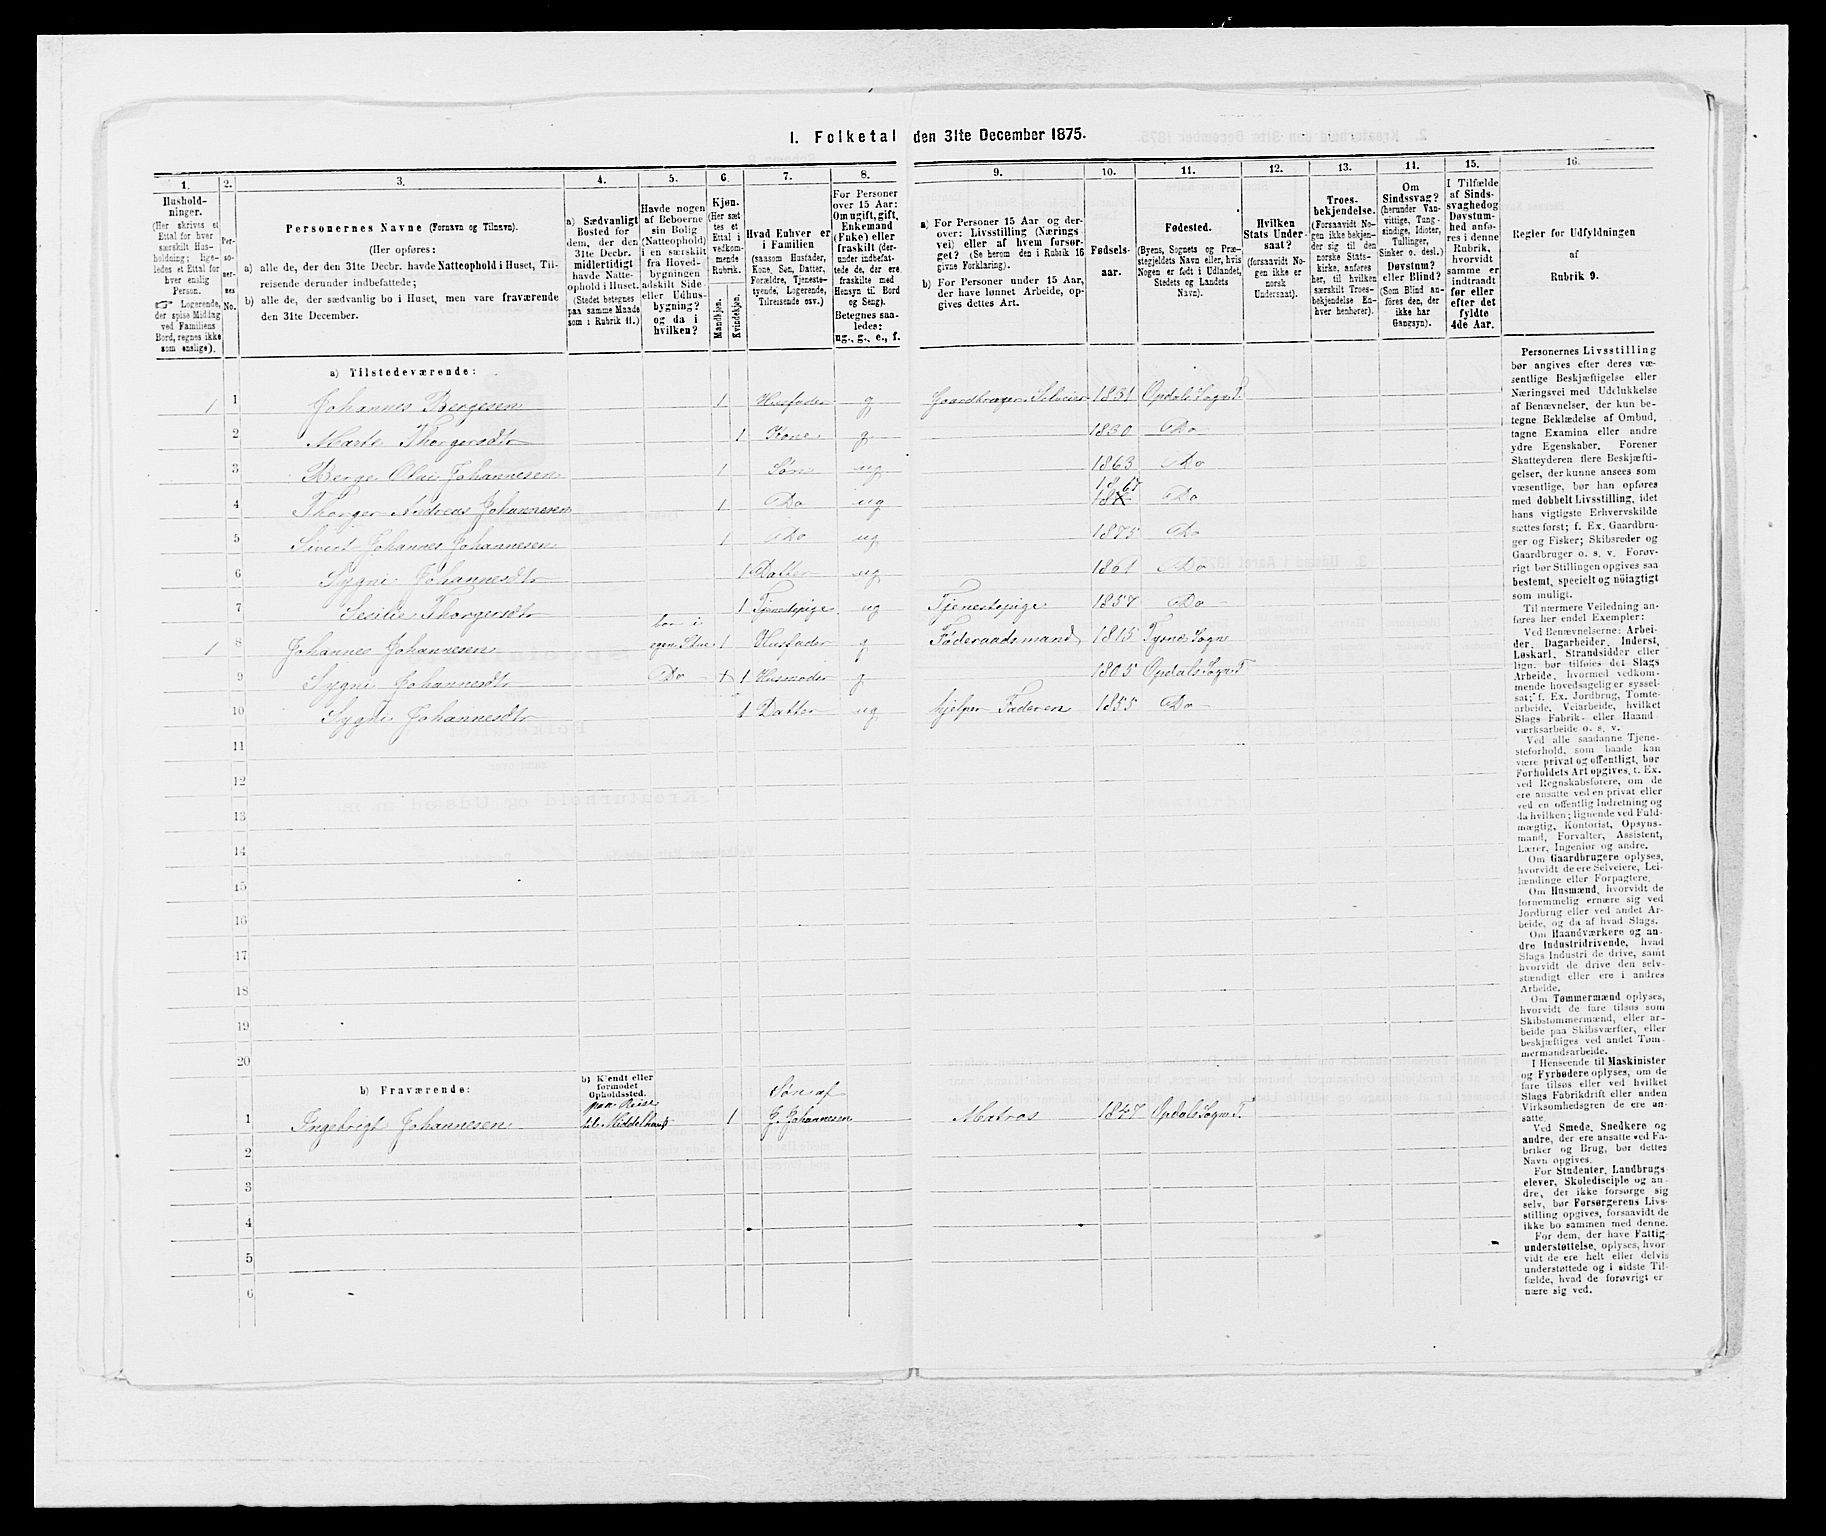 I. Folketal den 31te December 1875.
1. 2. 3. 4. 5. 6. 7. 8. 9. 10. 11. 12. 13. 14. 15. 16.
Hushold-
ninger.
(Her skrives et
Ettal for hver
særskilt Hus-
holdning; lige-
ledes et Ettal for
hver enslig
Person.
☞ Logerende,
der spise Middag
ved Familiens
Bord, regnes ikke
som enslige).
Per-
so-
ner-
nes
No.
Personernes Navne (Fornavn og Tilnavn).
(Her opføres:
a) alle de, der den 31te Decbr. havde Natteophold i Huset, Til-
reisende derunder indbefattede;
b) alle de, der sædvanlig bo i Huset, men vare fraværende
den 31te December.
a) Sædvanligt
Bosted for
dem, der den
31te Decbr.
midlertidigt
havde Natte-
ophold i Huset.
(Stedet betegnes
paa samme Maade
som i Rubrik 11.)
Havde nogen
af Beboerne
sin Bolig
(Natteophold)
i en særskilt
fra Hoved-
bygningen
adskilt Side-
eller Udhus-
bygning?
og da i
hvilken?
Kjøn.
(Her sæt-
tes et
Ettal i
vedkom-
mende
Rubrik.
Mandkjøn.
Kvindekjøn.
Hvad Enhver er
i Familien
(saasom Husfader,
Kone, Søn, Datter,
Forældre, Tjeneste-
tyende, Logerende,
Tilreisende osv.)
For Personer
over 15 Aar:
Om ugift, gift,
Enkemand
(Enke) eller
fraskilt (der-
under indbefat-
tede de, der ere
fraskilte med
Hensyn til Bord
og Seng).
Betegnes saa-
ledes:
ug., g., e., f.
a) For Personer 15 Aar og der-
over: Livsstilling (Nærings-
vei) eller af hvem forsør-
get? (Se herom den i Rubrik 16
givne Forklaring).
b) For Personer under 15 Aar,
der have lønnet Arbeide, op-
gives dettes Art.
Fødsels-
aar.
Fødested.
(Byens, Sognets og Præ-
stegjeldets Navn eller, hvis
Nogen er født i Udlandet,
Stedets og Landets
Navn).
Hvilken
Stats Under-
saat?
(forsaavidt No-
gen ikke er
norsk
Undersaat).
Troes-
bekjendelse.
(Forsaavidt No-
gen ikke bekjen-
der sig til den
norske Stats-
kirke, anføres
her, til hvilken
særskilt Troes-
bekjendelse En-
hver henhører).
Om
Sindssvag?
(herunder Van-
vittige, Tung-
sindige, Idioter,
Tullinger,
Sinker o. desl.)
Døvstum?
eller Blind?
(Som Blind an-
føres den, der
ikke har
Gangsyn).
I Tilfælde
af Sinds-
svaghed og
Døvstum-
hed anfø-
res i denne
Rubrik,
hvorvidt
samme er
indtraadt
før eller
efter det
fyldte
4de Aar.
Regler for Udfyldningen
af
Rubrik 9.
a) Tilstedeværende:
1 1 Johannes Bergesen 1 Husfader g Gaardbruger Selveier 1831 Opdals Sogn T.
2 Marte Thorgersdtr 1 Kone g 1830 Do
3 Berge Olai Johannesen 1 Søn ug 1863 Do
4 Thorger Andreas Johannesen 1 Do ug 1867 Do
5 Sivert Johannes Johannesen 1 Do ug 1875 Do
6 Sygni Johannesdtr 1 Datter ug 1861 Do
7 Sesilie Thorgersdtr 1 Tjenestepige ug Tjenestepige 1857 Do
1 8 Johannes Johannesen bor i egen Stue 1 Husfader g Føderaadsmand 1815 Tysnes Sogn
9 Sygni Johannesdtr Do 1 Husmoder g 1805 Opdals Sogn T
10 Sygni Johannesdtr 1 Datter ug hjelper Faderen 1855 Do
11
12
13
14
15
16
17
18
19
20
b) Fraværende:
b) Kjendt eller
formodet
Opholdssted.
1 Ingebrigt Johannesen paa Reise til Middelhavet 1 Søn af J. Johannesen Matros 1847 Opdals Sogn T.
2
3
4
5
6
Personernes Livsstilling
bør angives efter deres væ-
sentlige Beskjæftigelse eller
Næringsvei med Udelukkelse
af Benævnelser, der kun be-
tegne Beklædelse af Ombud,
tagne Examina eller andre
ydre Egenskaber. Forener
Skatteyderen flere Beskjæfti-
gelser, der kunne ansees som
væsentlige, bør han opføres
med dobbelt Livsstilling, idet
hans vigtigste Erhvervskilde
sættes først; f. Ex. Gaardbru-
ger og Fisker; Skibsreder og
Gaardbruger o. s. v. Forøv-
rigt bør Stillingen opgives saa
bestemt, specielt og nöiagtigt
som muligt.
Til nærmere Veiledning an-
føres her endel Exempler:
Ved Benævnelserne: Arbei-
der, Dagarbeider, Inderst,
Løskarl, Strandsidder eller
lign. bør tilføies det Slags
Arbeide, hvormed vedkom-
mende hovedsagelig er syssel-
sat; f. Ex. Jordbrug, Tomte-
arbeide, Veiarbeide, hvilket
Slags Fabrik- eller Haand-
værksarbeide o. s. v.
Ved alle saadanne Tjene-
steforhold, som baade kan
være privat og offentligt, bør
Forholdets Art opgives, t. Ex.
ved Regnskabsførere, om de
ere ansatte ved en privat eller
ved en offentlig Indretning og
da hvilken; lignende ved Fuld-
mægtig, Kontorist, Opsyns-
mand, Forvalter, Assistent,
Lærer, Ingeniør og andre.
Om Gaardbrugere oplyses,
hvorvidt de ere Selveiere, Lei-
lændinge eller Forpagtere.
Om Husmænd, hvorvidt de
fornemmelig ernære sig ved
Jordbrug eller ved andet Ar-
beide, og da af hvad Slags.
Om Haandværkere og an-
dre Industridrivende, hvad
Slags Industri de drive, samt
hvorvidt de drive den selv-
stændigt eller ere i andres
Arbeide.
Om Tømmermænd oplyses,
hvorvidt de fare tilsøs som
Skibstømmermænd, eller ar-
beide paa Skibsværfter, eller
beskjæftiges ved andet Tøm-
mermandsarbeide.
I Henseende til Maskinister
og Fyrbødere oplyses, om de
fare tilsøs eller ved hvilket
Slags Fabrikdrift eller anden
Virksomhedsgren de ere an-
satte.
Ved Smede, Snedkere og
andre, der ere ansatte ved Fa-
briker og Brug, bør dettes
Navn opgives.
For Studenter, Landbrugs-
elever, Skoledisciple og an-
dre, der ikke forsørge sig
selv, bør Forsørgerens Livs-
stilling opgives, forsaavidt de
ikke bo sammen med denne.
For dem, der have Fattig-
understøttelse, oplyses, hvor-
vidt de ere helt eller delvis
understøttede og i sidste Til-
fælde, hvad de forøvrigt er-
nære sig ved.